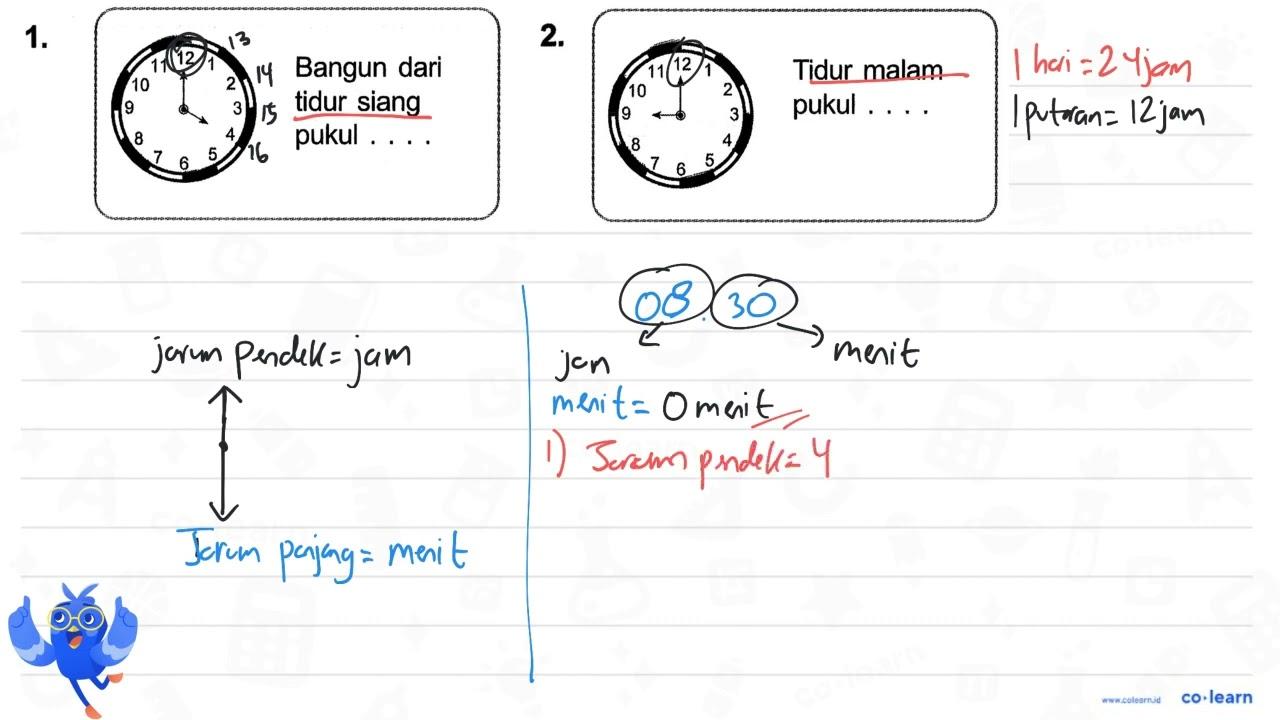 1.
12
1
2
3
4
5
6
7
8
9
10
11
13
14
15
16
Bangun dari
tidur siang
pukul . . . .
2.
12
1
2
3
4
5
6
7
8
9
10
11
Tidur malam
pukul . . . .
1 hari = 24 jam
1 putaran = 12 jam
08.30
jam
menit
jarum pendek = jam
Jarum panjang = menit
menit = 0 menit
1) Jarum pendek = 4
co·learn
www.colearn.id co·learn